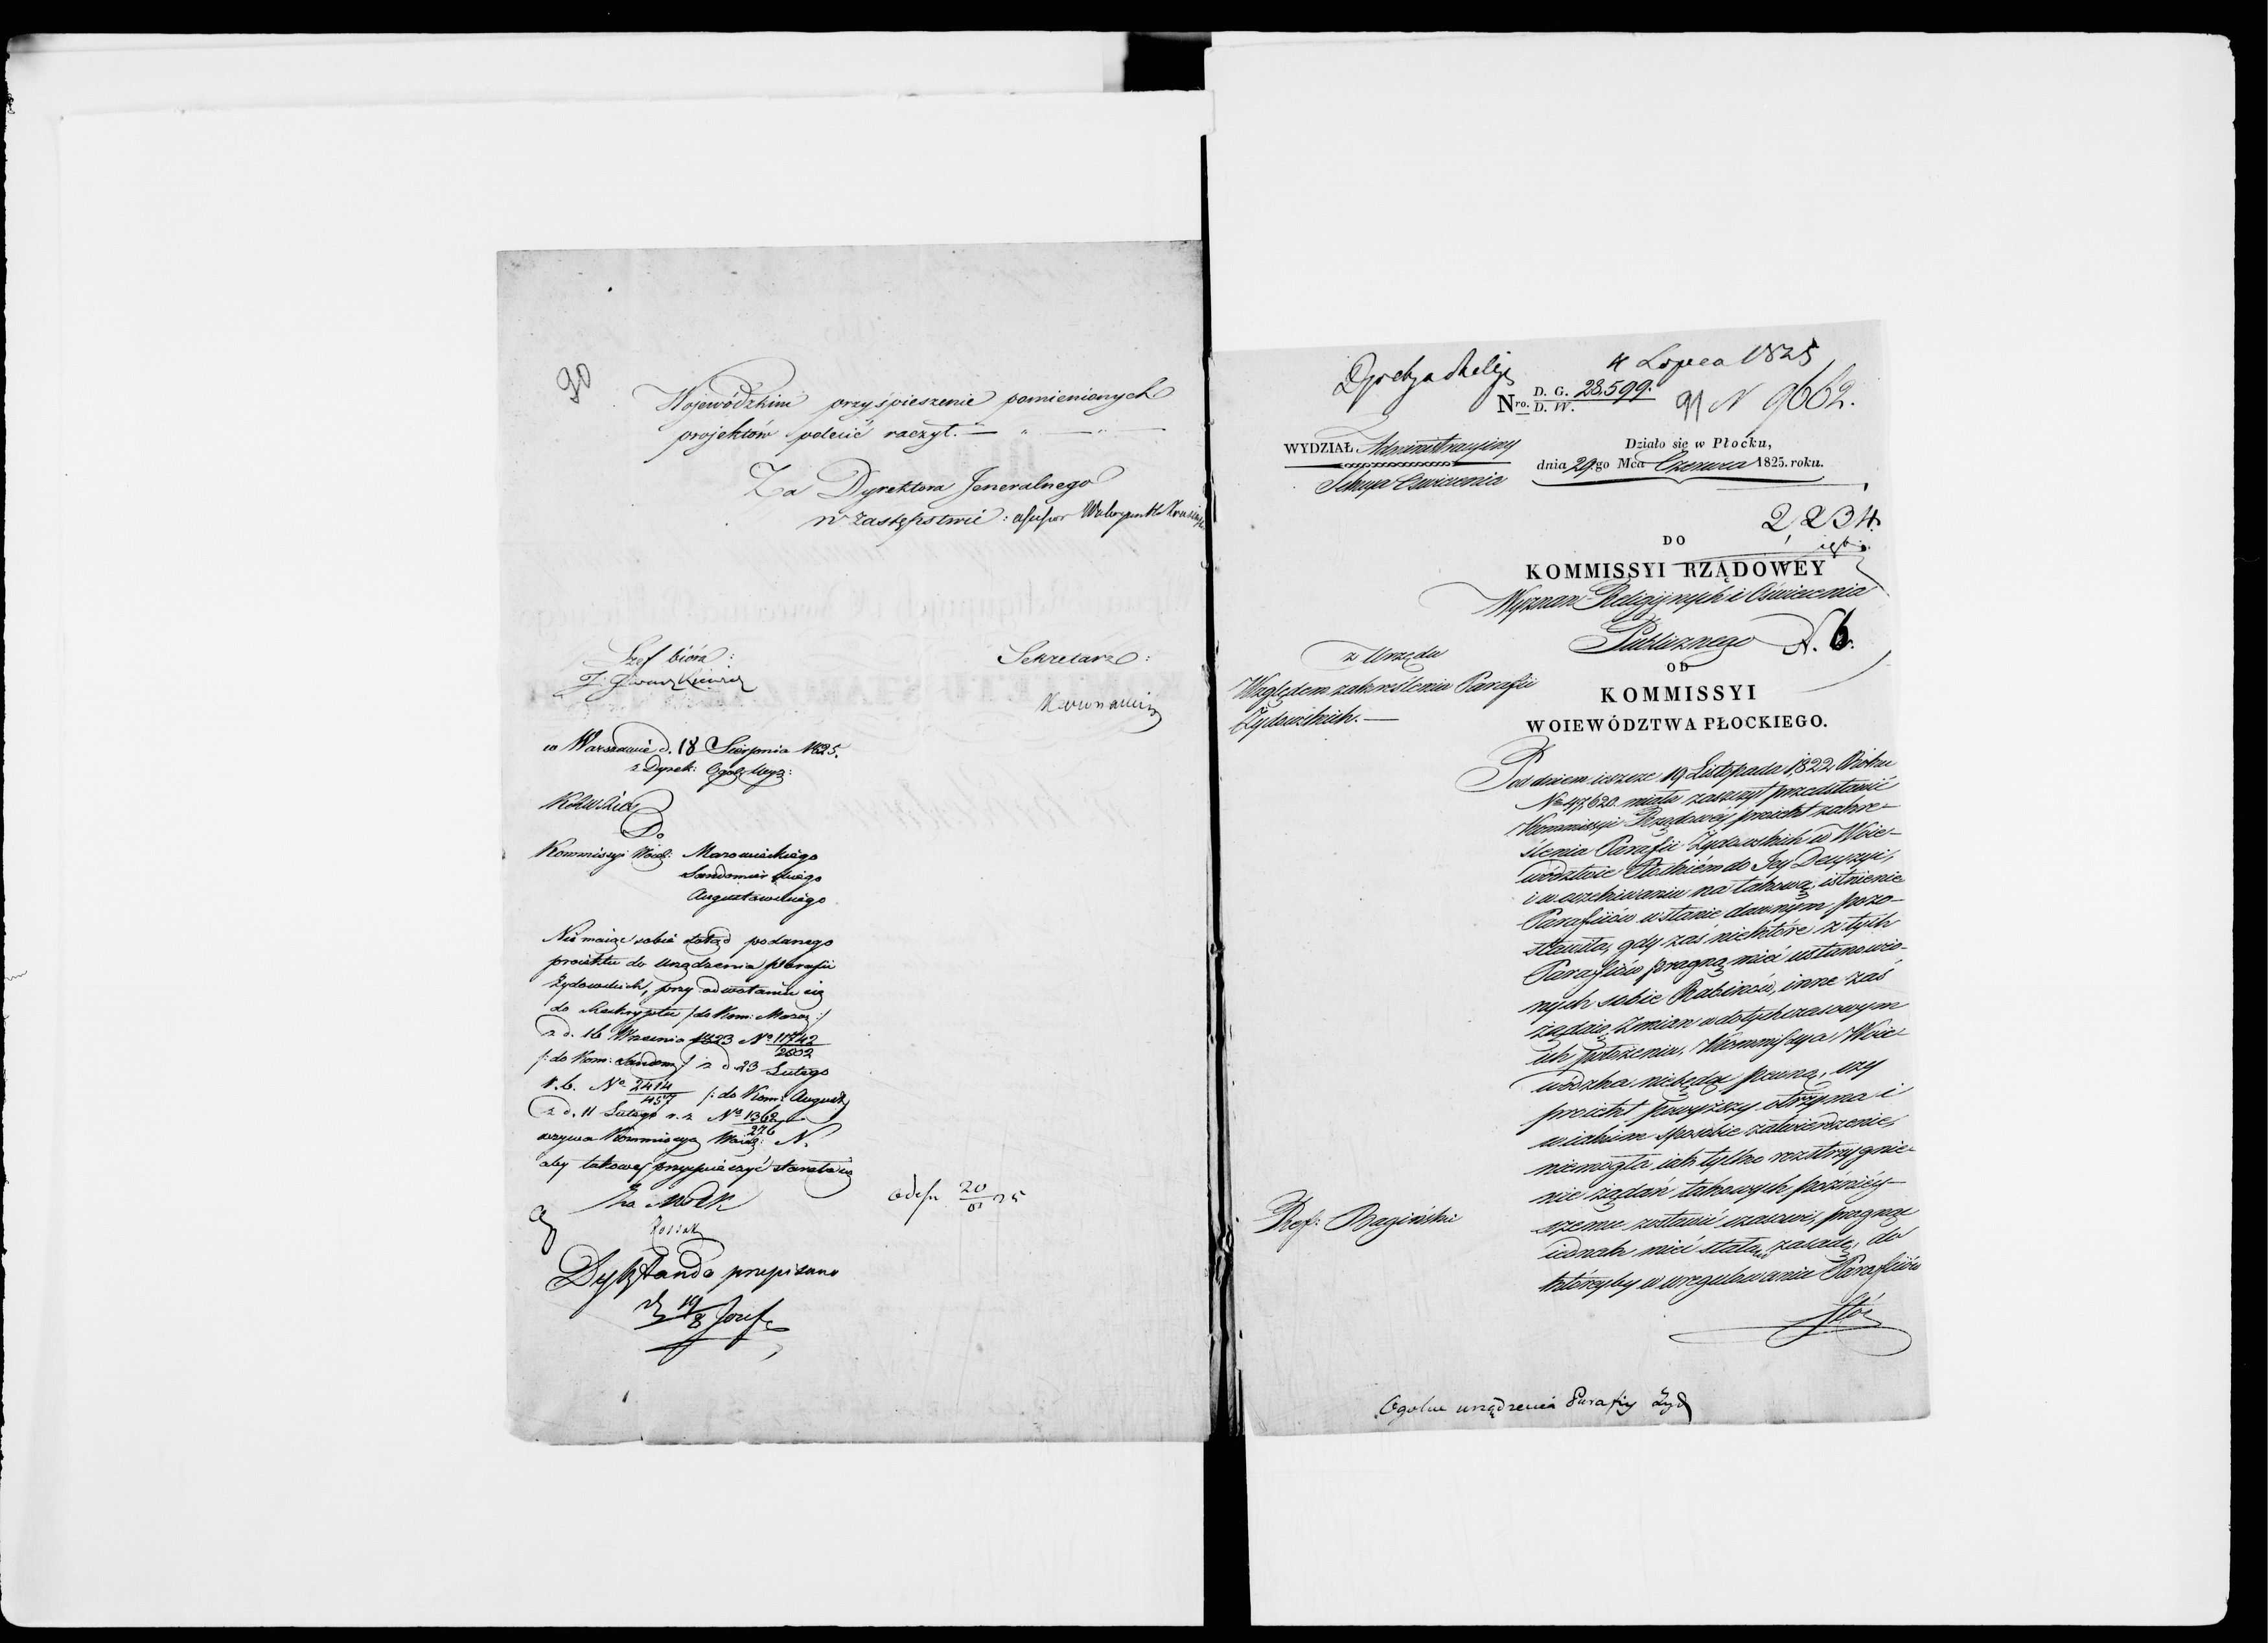 90
Wojewódzkim przyśpieszenie pomienionych
projektów polecić raczył. —
Za Dyrektora Jeneralnego
w zastępstwie:
Szef bióra:
Sekretarz:
w Warszawie d. 18 Sierpnia 1825.
z Dyrek:
Do
Kommissyi Woiew: Mazowieckiego
Sandomirskiego
Augustowskiego
Nie maiąc sobie dotąd podanego
proiektu do urządzenia Parafii
Żydowskich, przy odwołaniu się
do Reskryptu /: do Kom: Mazow :/
z d. 16 Września 1823 Nº 11742
2802
/: do Kom: Sandom :/ z d 23 Lutego
r. b. Nº 2414
457 /: do Kom: August
z d. 11 Lutego r. z Nº 1368
276
wzywa Kommissyą Woiew: N.
aby takowej przyspieszyć starała się
20
25
przepisano
19
8 Józef
Lipca 1825
Nro. D. G. 28,599.
D. W.
91 N 9662.
WYDZIAŁ Administracyiny
Sekcya Oświecenia
Działo się w Płocku,
dnia 29.go Mca Czerwca 1825. roku.
2,234.
DO
KOMMISSYI RZĄDOWÉY
Wyznań Religijnych i Oświecenia
Publicznego N. 6.
OD
KOMMISSYI
WOIEWÓDZTWA PŁOCKIEGO.
z Urzędu
Względem zakreślenia Parafii
Żydowskich. —
Pod dniem ieszcze 19 Listopada 1822 Roku
Nº 47,620. miała zaszczyt przedstawić
Kommissyi Rządowéy proiekt zakre-
ślenia Parafii Żydowskich w Woie-
wództwie Płockiém do Jey Decyzyi,
i w oczekiwaniu na takową, istnienie
Parafiiów w stanie dawnym pozo-
stawiła, gdy zaś niektóre z tych
Parafiiów pragną mieć ustanowio-
nych sobie Rabinów, inne zaś
żądaią zmian w dotychczasowym
ich położeniu, Kommissya Woie-
wódzka niebędąc pewną, czy
proiekt powyższy otrzyma i
w iakim sposobie zatwierdzenie,
niemogła iak tylko rozstrzygnie-
nie żądań takowych późniey-
szemu zostawić czasowi, pragnąc
iednak mieć stałą zasadę, do
któréyby w uregulowaniu Parafiiów
Ref: Bagiński
Ogolne urządzenia Parafiy Żyd